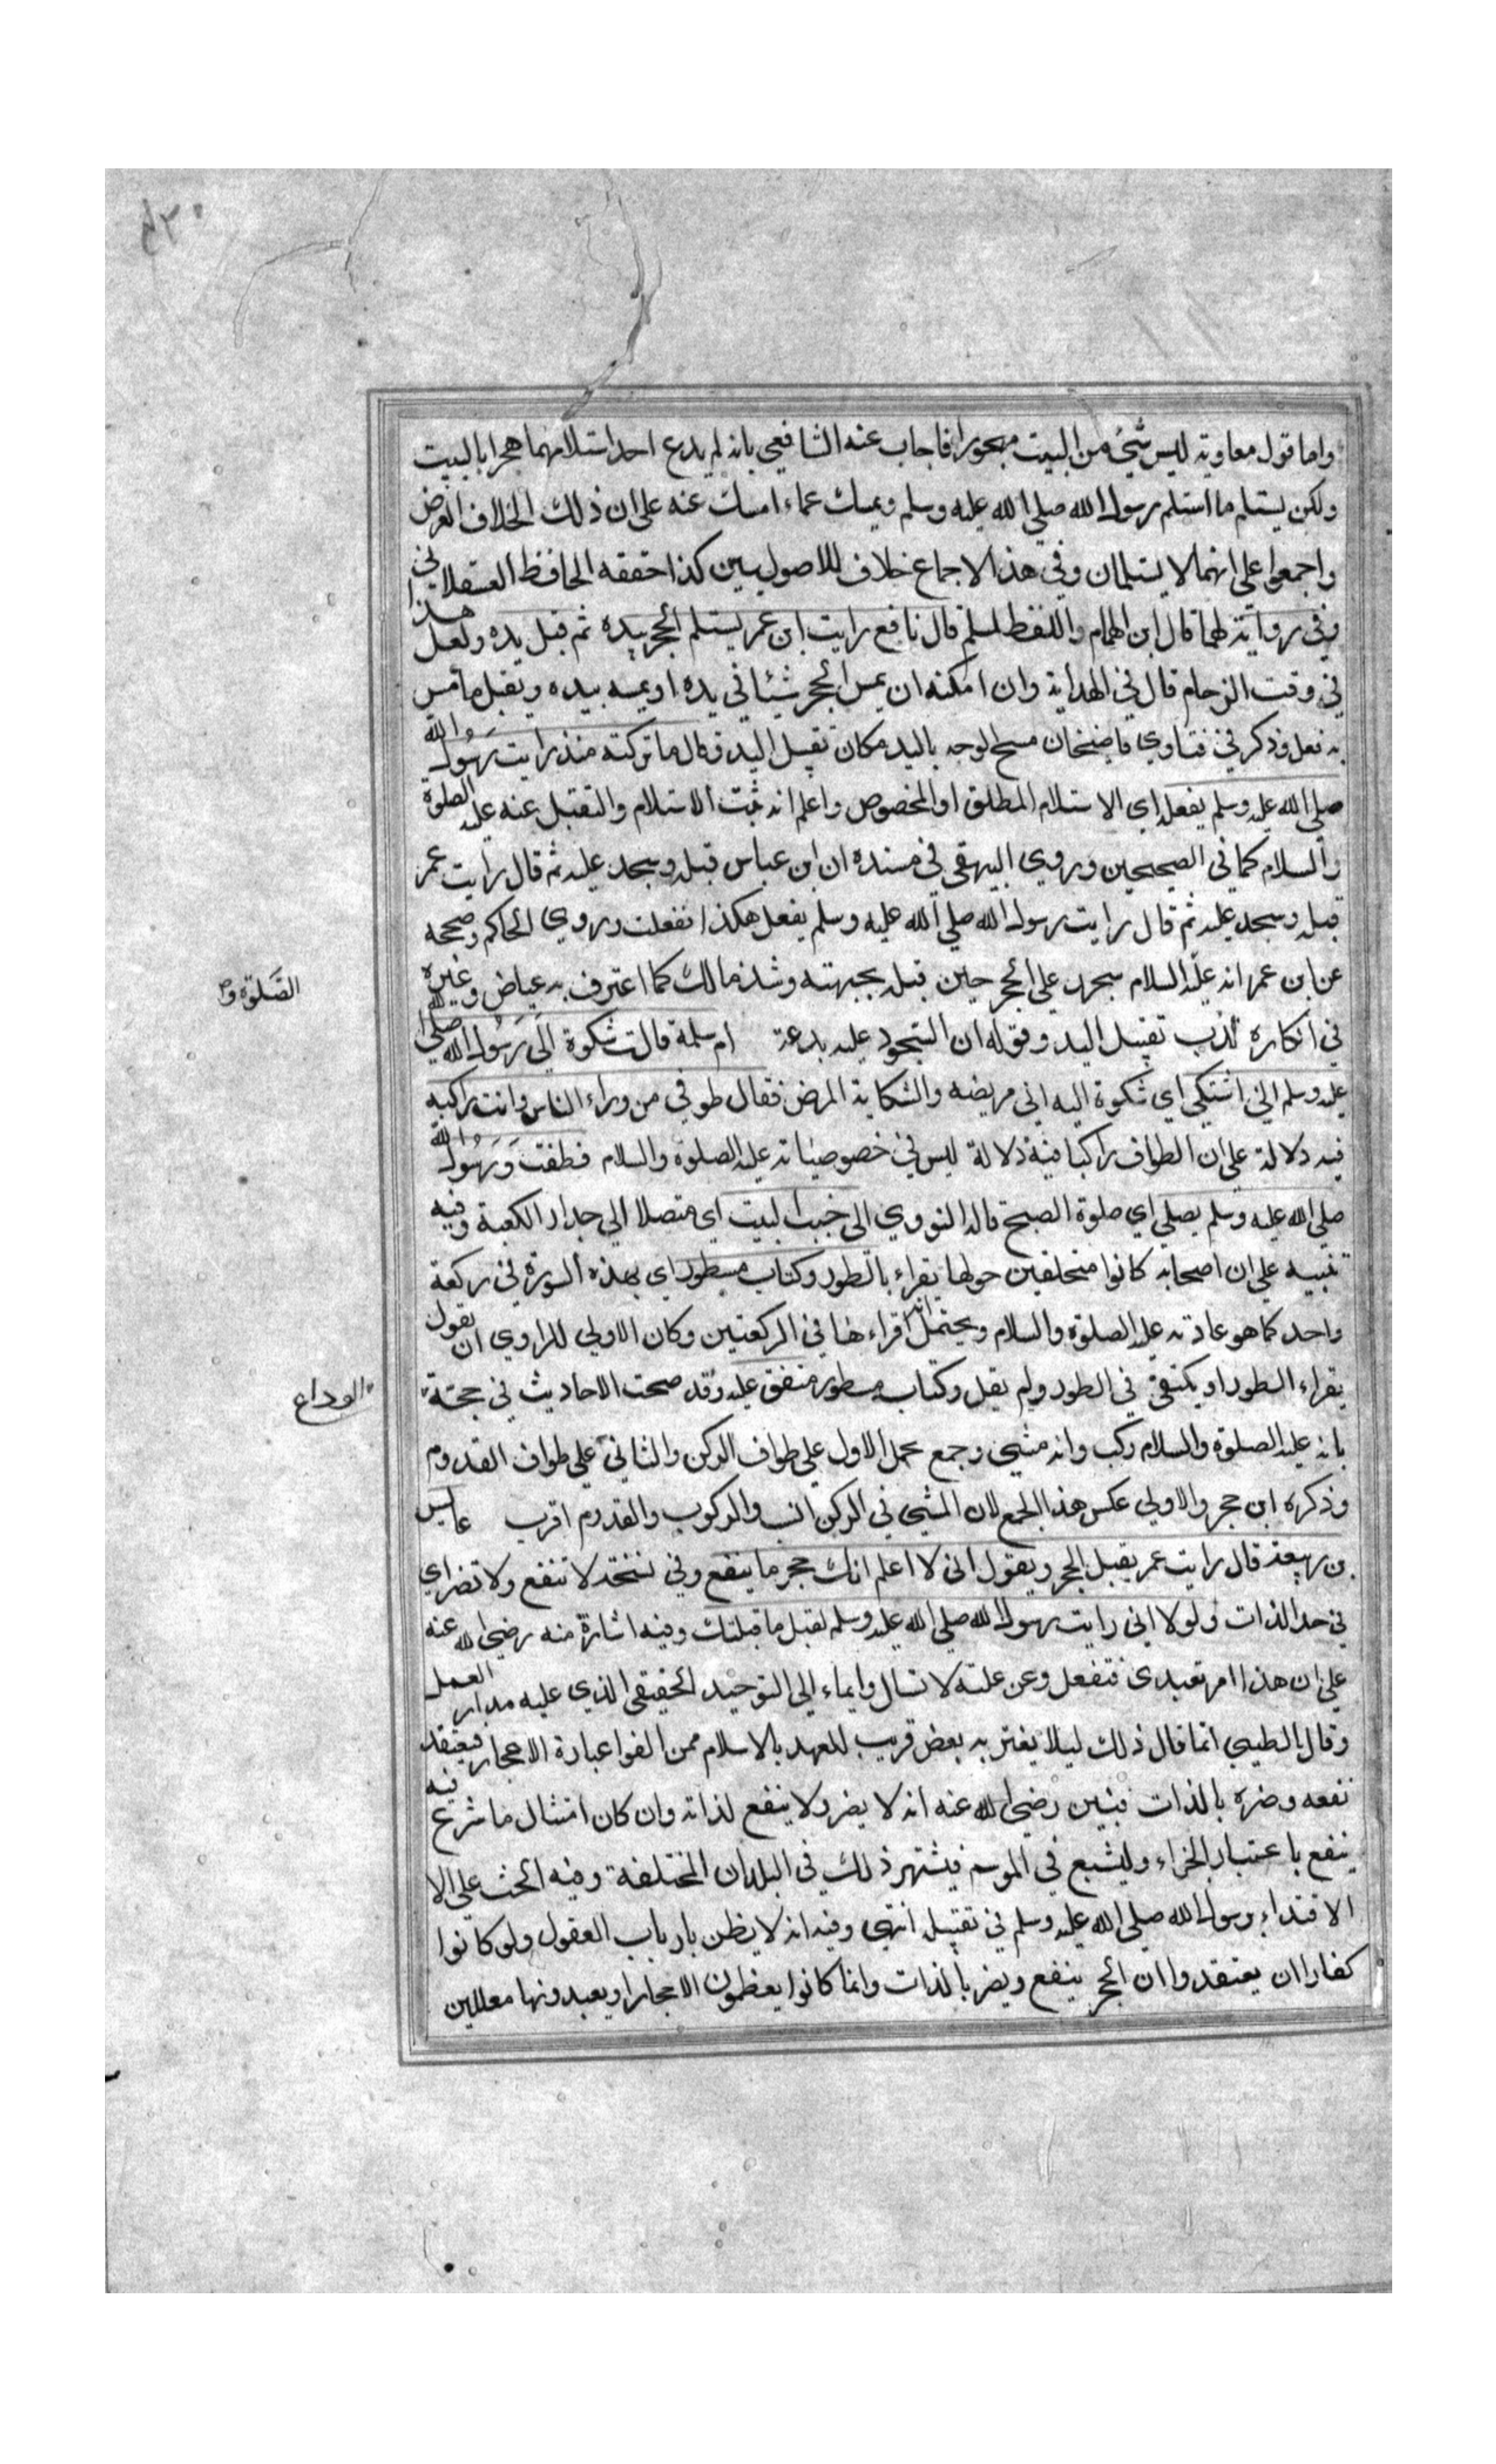 ٤٣٠
واما قول معاوية ليس شئ من البيت مهجورا فاجاب عنه الشافعي بانه لم يدع احد استلامهما هجرا بالبيت
ولكن يستلم ما استلم رسول الله صلي الله عليه وسلم ويمسك عماء امسك عنه علي ان ذلك الخلاف انقرض
واجمعوا علي انهما لا يستلمان وفي هذا الاجماع خلاف للاصوليين كذا حققه الحافظ العسقلاني
وفي رواية لهما قال ابن الهمام واللفظ لمسلم قال نافع رايت ابن عمر يستلم الحجر بيده ثم قبل يده ولعل هذا
في وقت الزحام قال في الهداية وان امكنه ان يمس الحجر شيئا في يده او يمسه بيده ويقبل ما مس
به فعل وذكر في فتاوي قاضيخان مسح الوجه باليد مكان تقبيل اليد وقال ما تركته منذ رايت رسول الله
صلي الله عليه وسلم يفعله اي الاستلام المطلق او المخصوص واعلم انه ثبت الاستلام والتقبل عنه عليه الصلوة
والسلام كما في الصحيحين وروي البيهقي في مسنده ان ابن عباس قبله وسجد عليه ثم قال رايت عمر
قبله وسجد عليه ثم قال رايت رسول الله صلي الله عليه وسلم يفعل هكذا نفعلت وروي الحاكم وصححه
عن ابن عمر انه عليه السلام سجد علي الحجر حين قبله بجبهته وشذ مالك كما اعترف به عياض وغيره
الصلوة و
في انكاره ندب تقبيل اليد وقوله ان السجود عليه بدعة ام سلمة قالت شكوة الي رسول الله صلي الله
عليه وسلم اني اشتكي اي شكوة اليه اني مريضه والشكاية المرض فقال طوفي من وراء الناس وانت راكبة
فيه دلالة علي ان الطواف راكبا فيه دلالة ليس في خصوصياته عليه الصلوة والسلام فطفت ورسول الله
صلي الله عليه وسلم يصلي اي صلوة الصبح قاله النووي الي جنب البيت اي متصلا الي جدار الكعبة وفيه
تنبيه علي ان اصحابه كانوا متحلقين حولها يقراء بالطور وكتاب مسطور اي بهذه السورة في ركعة
واحد كما هو عادته عليه الصلوة والسلام ويحتمل انه قراءها في الركعتين وكان الاولي للراوي ان يقول
يقراء الطور او يكتفي في الطور ولم يقل وكتاب مسطور متفق عليه وقد صحت الاحاديث في حجة
الوداع
بانه عليه الصلوة والسلام ركب وانه مشي وجمع بحمل الاول علي طواف الركن والثاني علي طواف القدوم
وذكره ابن حجر والاولي عكس هذا الجمع لان المشي في الركن انسب والركوب والقدوم اقرب عابس
بن ربيعة قال رايت عمر يقبل الحجر ويقول اني لا اعلم انك حجر ما ينفع وفي نسخة لا تنفع ولا تضر اي
في حد الذات ولولا اني رايت رسول الله صلي الله عليه وسلم يقبل ما قبلتك وفيه اشارة منه رضي الله عنه
علي ان هذا امر تعبدي فنفعل وعن علته لا نسال وايماء الي التوحيد الحقيقي الذي عليه مدار العمل
وقال الطيبي انما قال ذلك ليلا يغتر به بعض قريب العهد بالاسلام ممن الفوا عبادة الاحجار فيعتقد
نفعه وضره بالذات فبين رضي الله عنه انه لا يضر ولا ينفع لذاته وان كان امتثال ما شرع فيه
ينفع باعتبار الجزاء وليشيع في الموسم فيشتهر ذلك في البلدان المختلفة وفيه الحث علي الا
الاقتداء برسول الله صلي الله عليه وسلم في تقبيله انتهي وفيه انه لا يظن بارباب العقول ولو كانوا
كفارا ان يعتقدوا ان الحجر ينفع ويضر بالذات وانما كانوا يعظمون الاحجار او يعبدونها معللين